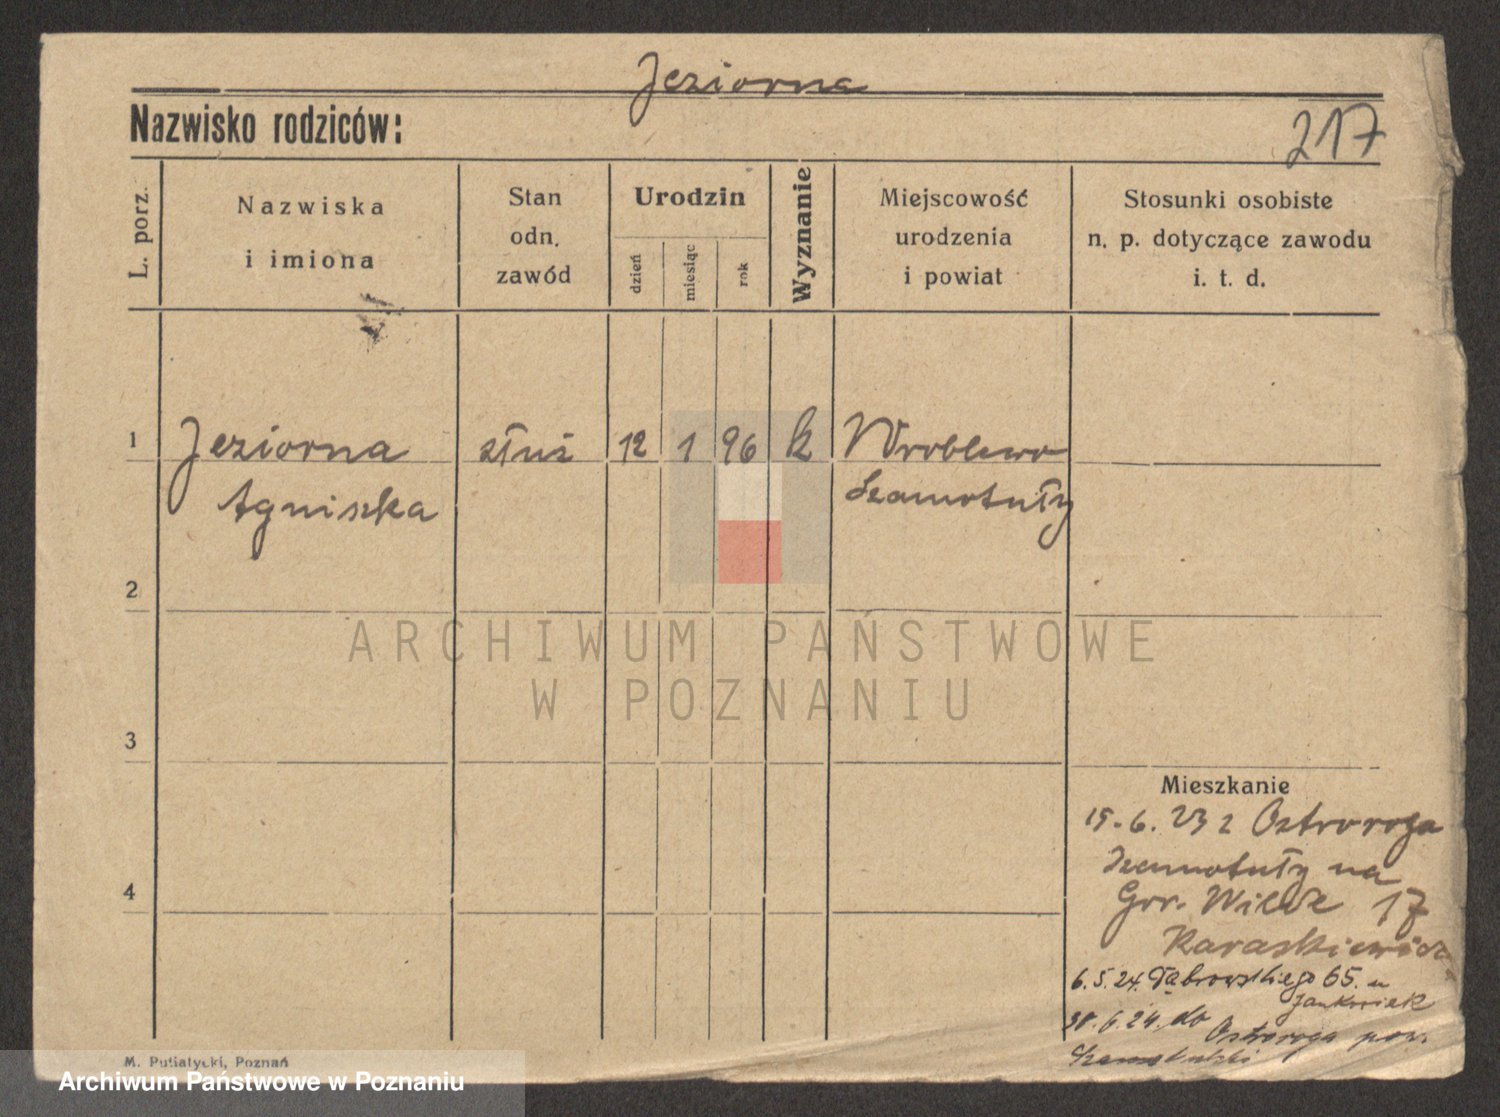 Jeziorna
Nazwisko rodziców:
217
L. porz.
Nazwiska
i imiona
Stan
odn.
zawód
Urodzin
dzień
miesiąc
rok
Wyznanie
Miejscowość
urodzenia
i powiat
Stosunki osobiste
n. p. dotyczące zawodu
i. t. d.
1
Jeziorna
Agniszka
służ
12
1
96
k
Wroblewo
Szamotuły
2
ARCHIWUM PAŃSTWOWE
W POZNANIU
3
Mieszkanie
15.6.23 z Ostroroga
Szamotuły na
Gór. Wilde 17
Karaskiewicz
4
6.5.24. Dąbrowskiego 65. u
Jankowiak
30.6.24. do Ostroroga pow.
Szamotulski
M. Putiatycki, Poznań
Archiwum Państwowe w Poznaniu